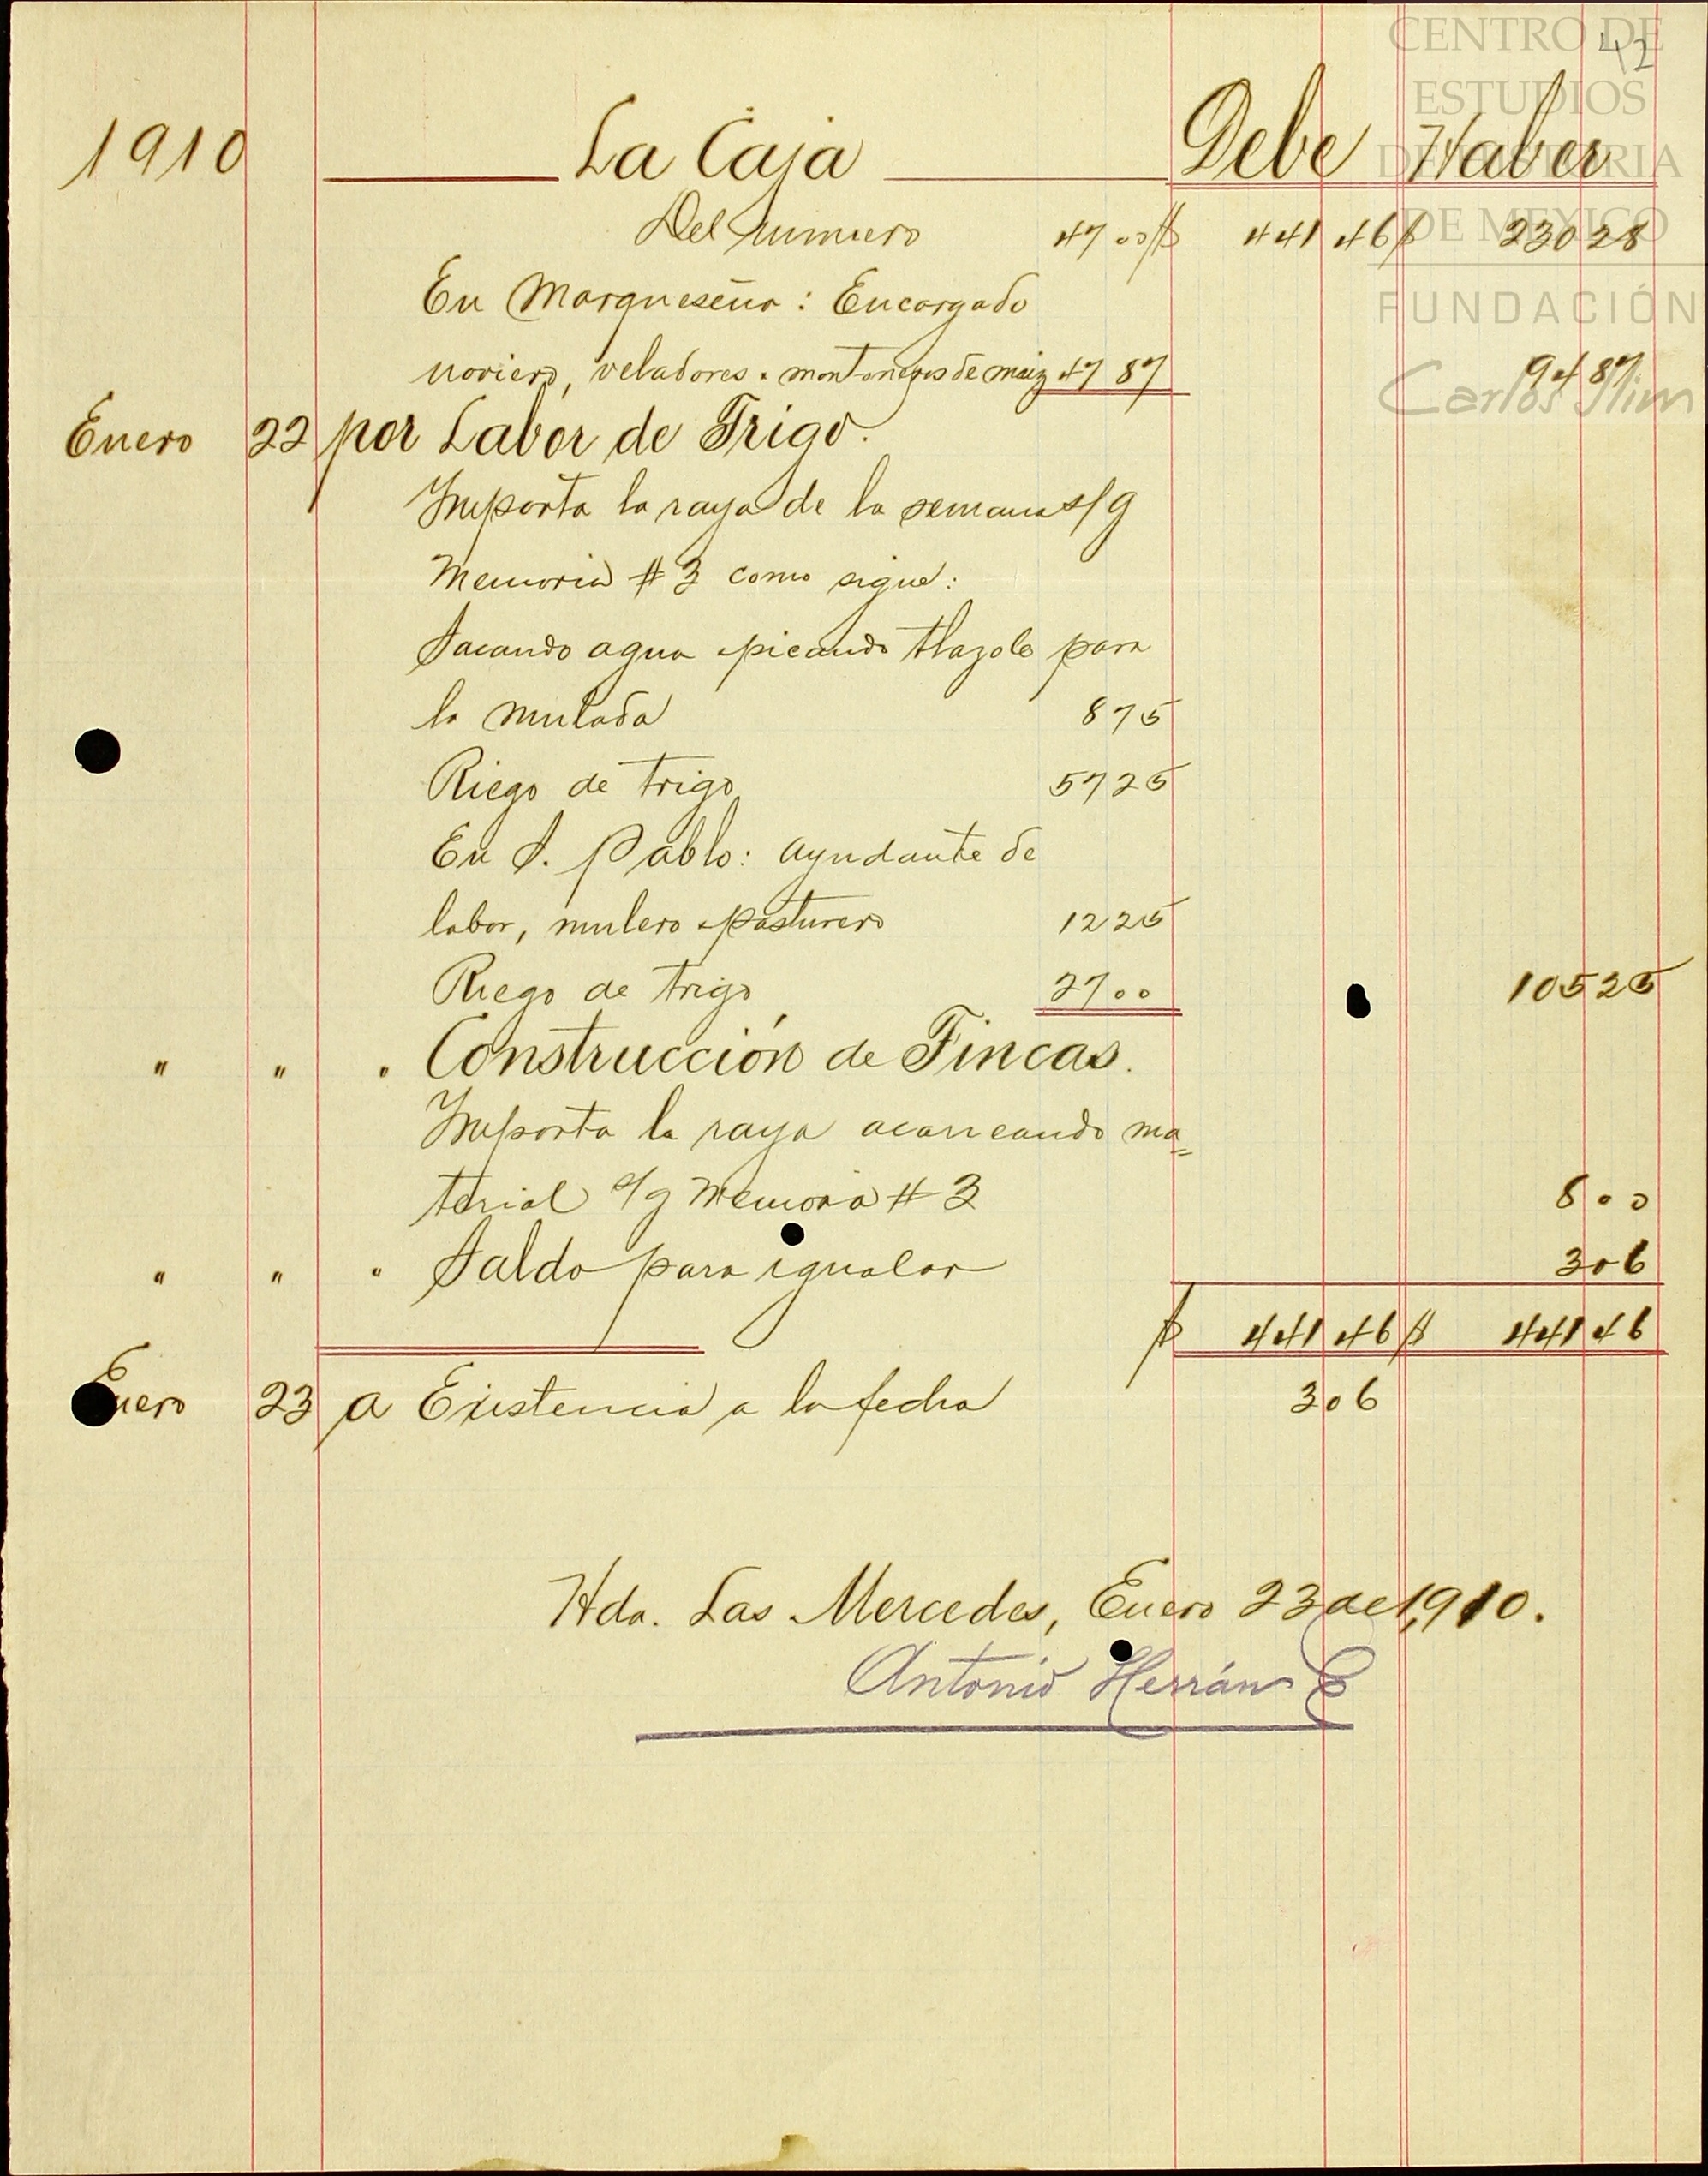 CENTRO DE
ESTUDIOS
DE HISTORIA
DE MEXICO
FUNDACIÓN
Carlos Slim
42
1910 La Caja Debe Haber
Del número 47 00 $ 441 46 $ 230 28
En Marqueseña: Encargado
noriero, veladores y montoneros de maiz 47 87 94 87
Enero 22 por Labor de Trigo.
Importa la raya de la semana s/g
Memoria # 3 como sigue:
Sacando agua y picando tlazole para
la mulada 8 75
Riego de trigo 57 25
En S. Pablo: ayudante de
labor, mulero y pasturero 12 25
Riego de trigo 27 00 105 25
" " " Construcción de Fincas.
Importa la raya acarreando ma=
terial s/g Memoria # 3 8 00
" " " Saldo para igualar 3 06
$ 441 46 $ 441 46
Enero 23 a Existencia a la fecha 3 06
Hda. Las Mercedes, Enero 23 de 1,910.
Antonio Herrán E